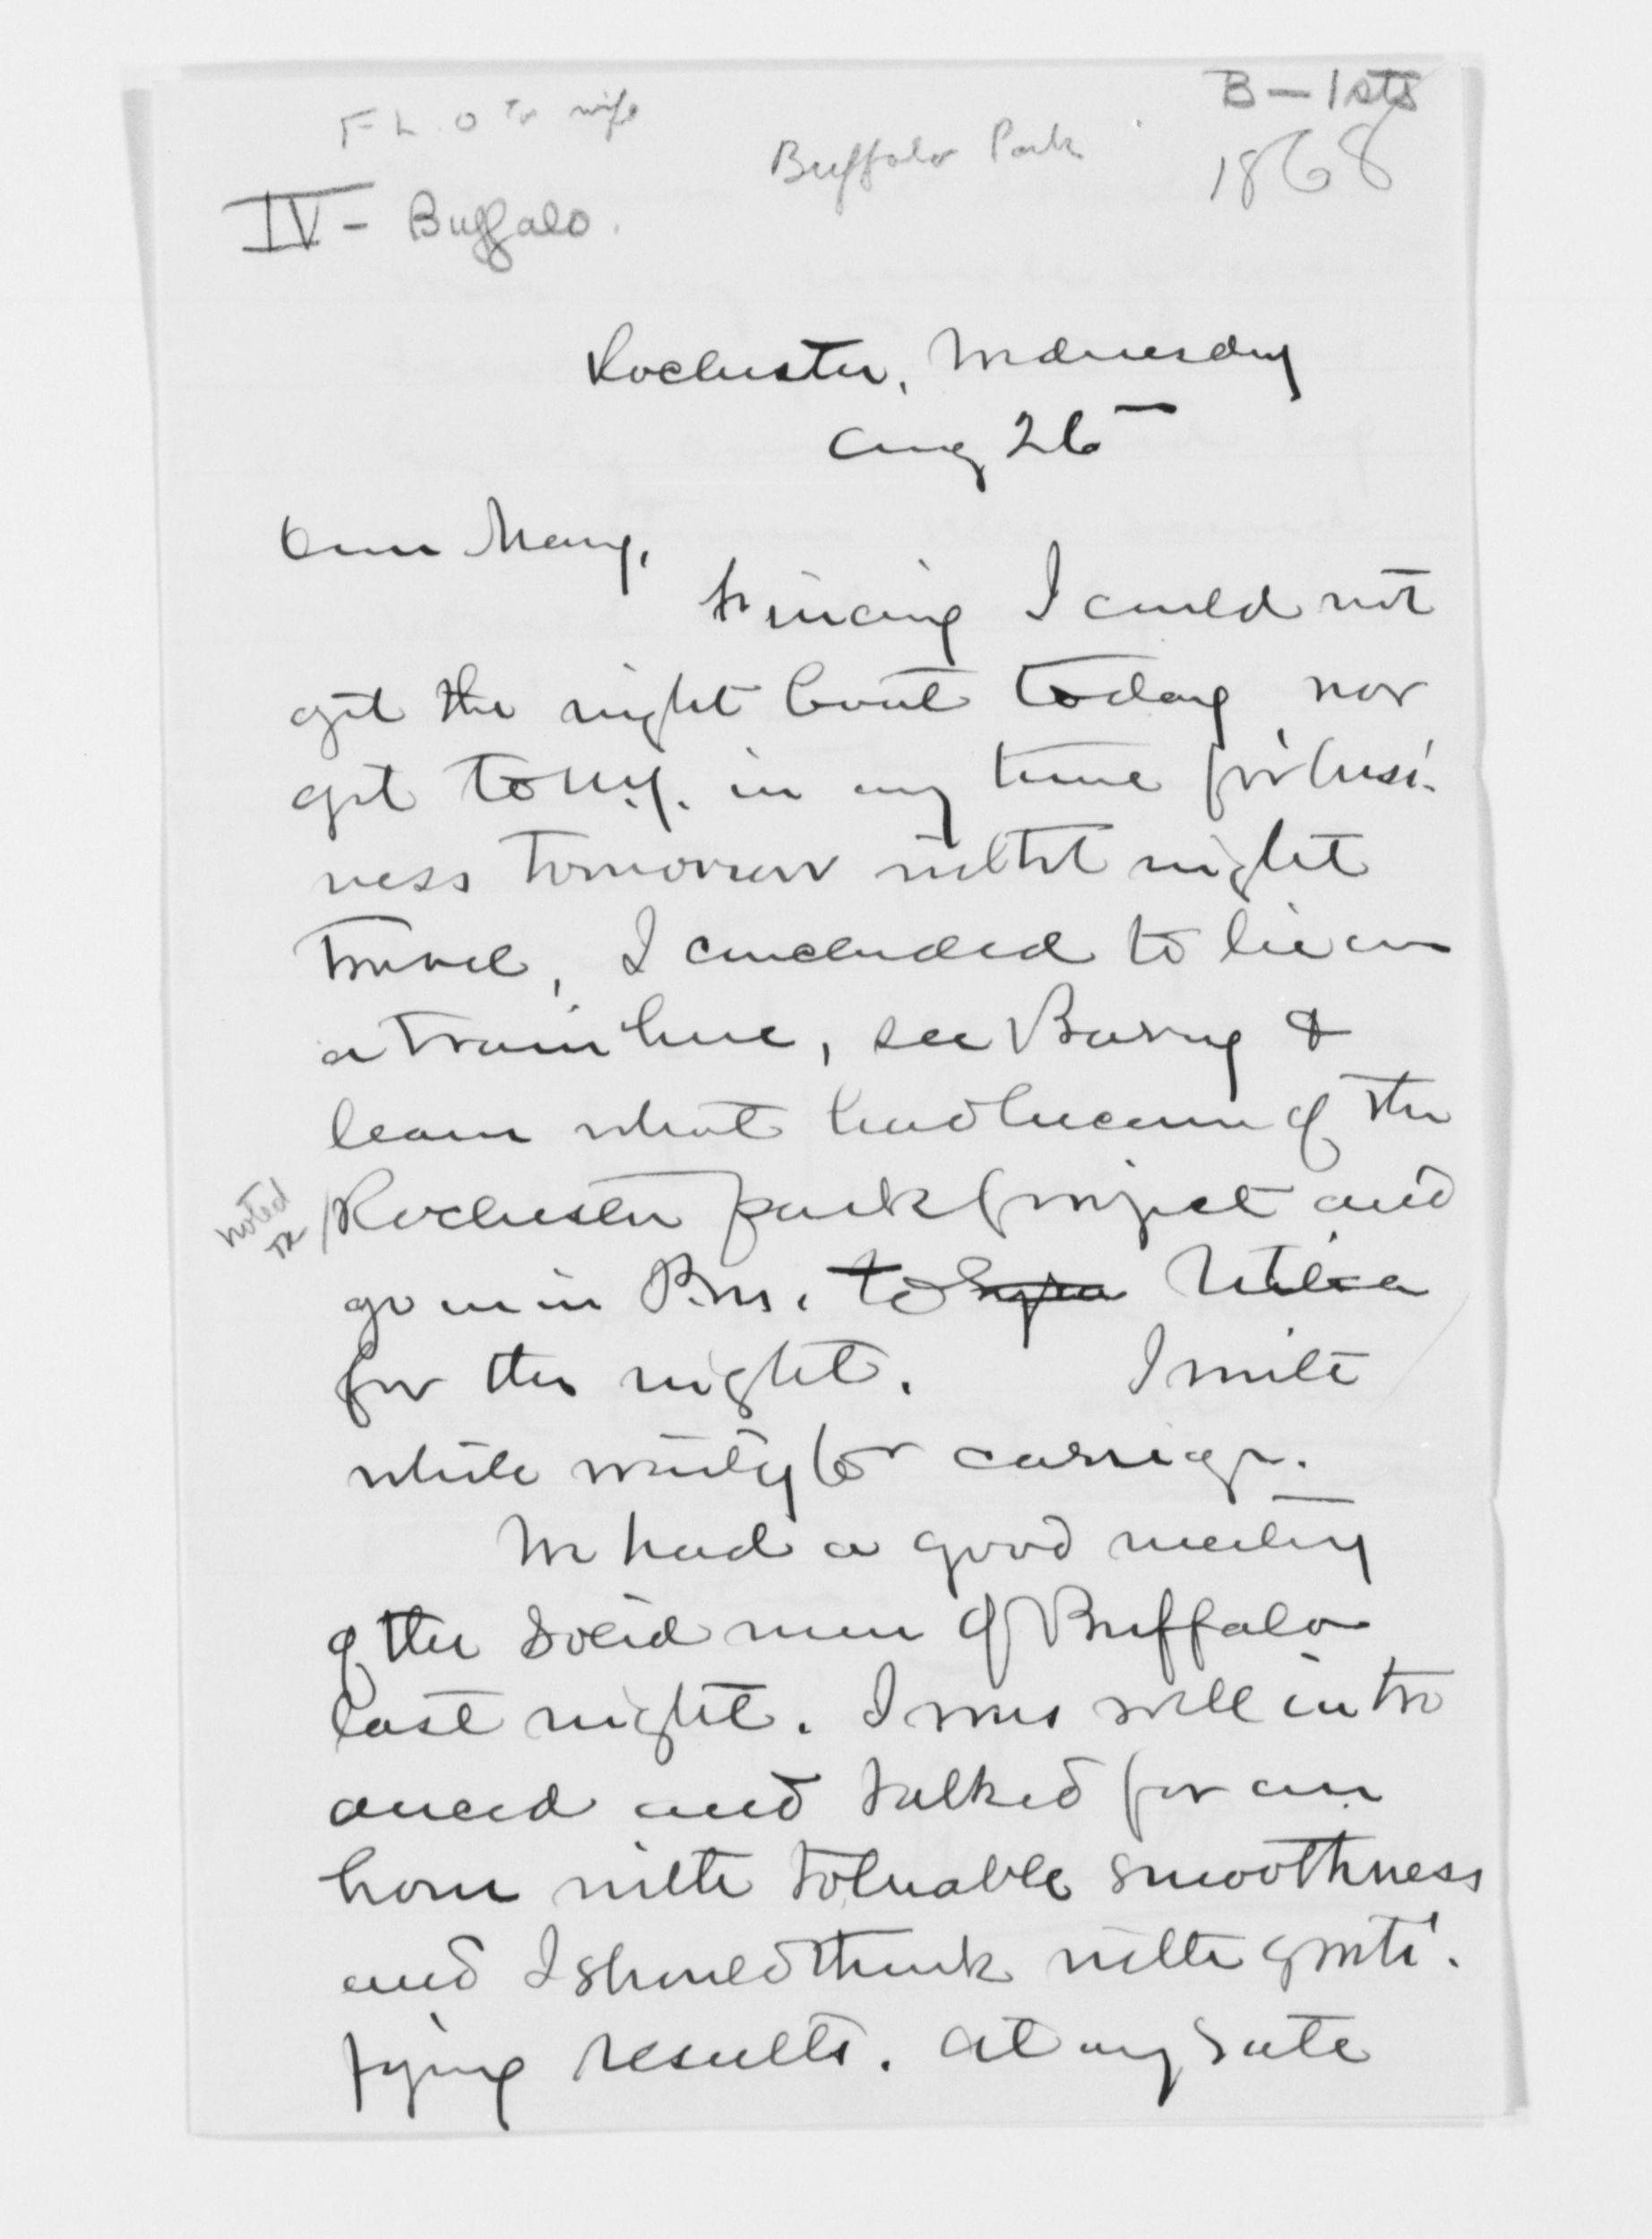 F L. O to wife
B — 1sts
Buffalo Park
1868
IV - Buffalo.
Rochester, Wednesday
Aug 26
Dear Mary,
Finding I could not
get the night boat today, nor
get to N.Y. in any time for busi-
ness tomorrow without night
travel, I concluded to lie over
a train here, see Barry &
learn what had become of the
noted
Rochester park project and
go on in P.m. to Utica
for the night. I write
while waiting for carriage.
We had a good meeting
of the solid men of Buffalo
last night. I was well intro
duced and talked for an
hour with tolerable smoothness
and I should think with grati-
fying results. At any rate